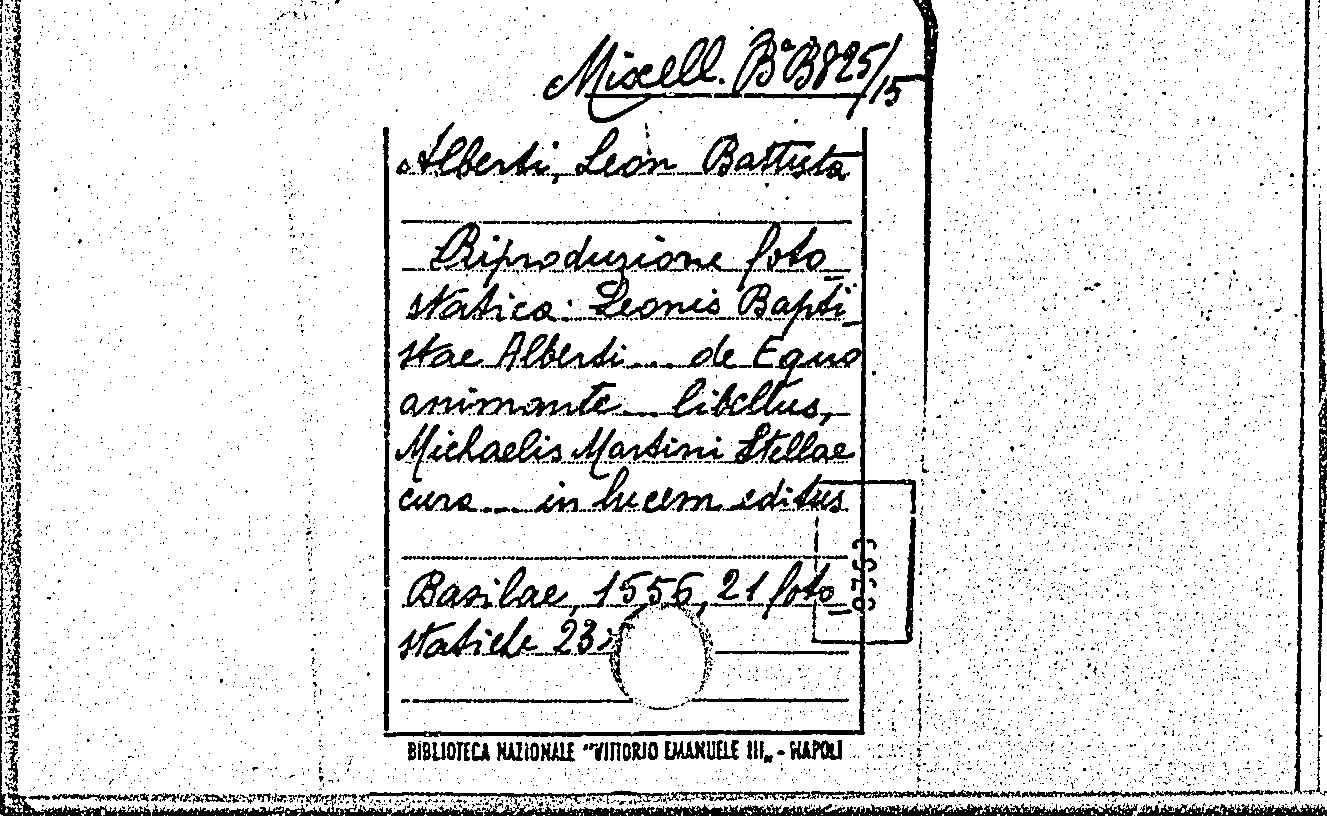 Miscell. Bª B825/15
Alberti, Leon Battista
Riproduzione foto_
statica: Leonis Bapti_
stae Alberti... de Equo
animante... libellus,
Michaelis Martini Stellae
cura... in lucem editus
Basilae, 1556, 21 foto_
statiche 23
BIBLIOTECA NAZIONALE "VITTORIO EMANUELE III„ - NAPOLI